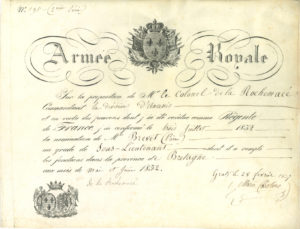 Armée Royale
Sur la proposition de Mr Le Colonel de la Rochemacé
Commandant la division d'Ancenis
et en vertu des pouvoirs dont j'ai été revêtue comme Régente
de France, j'ai confirmé le trois Juillet 1832
la nomination de Mr Brevet (Pre)
au grade de Sous-Lieutenant dont il a rempli
les fonctions dans la province de Bretagne
aux mois de mai et Juin 1832.
Gratz Le 28 février 1837